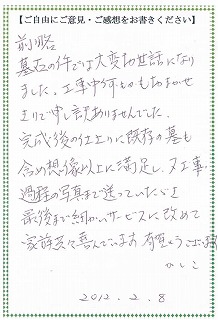 【ご自由にご意見・ご感想をお書きください】
前略
墓石の件では大変お世話になり
ました。工事中何もかもおまかせ
きりで申し訳ありませんでした。
完成後の仕上りに既存の墓も
含め想像以上に満足し、又工事
過程の写真まで送っていただき
最後まで細かいサービスに改めて
家族皆で喜んでいます。有難うございます
かしこ
2012.2.8